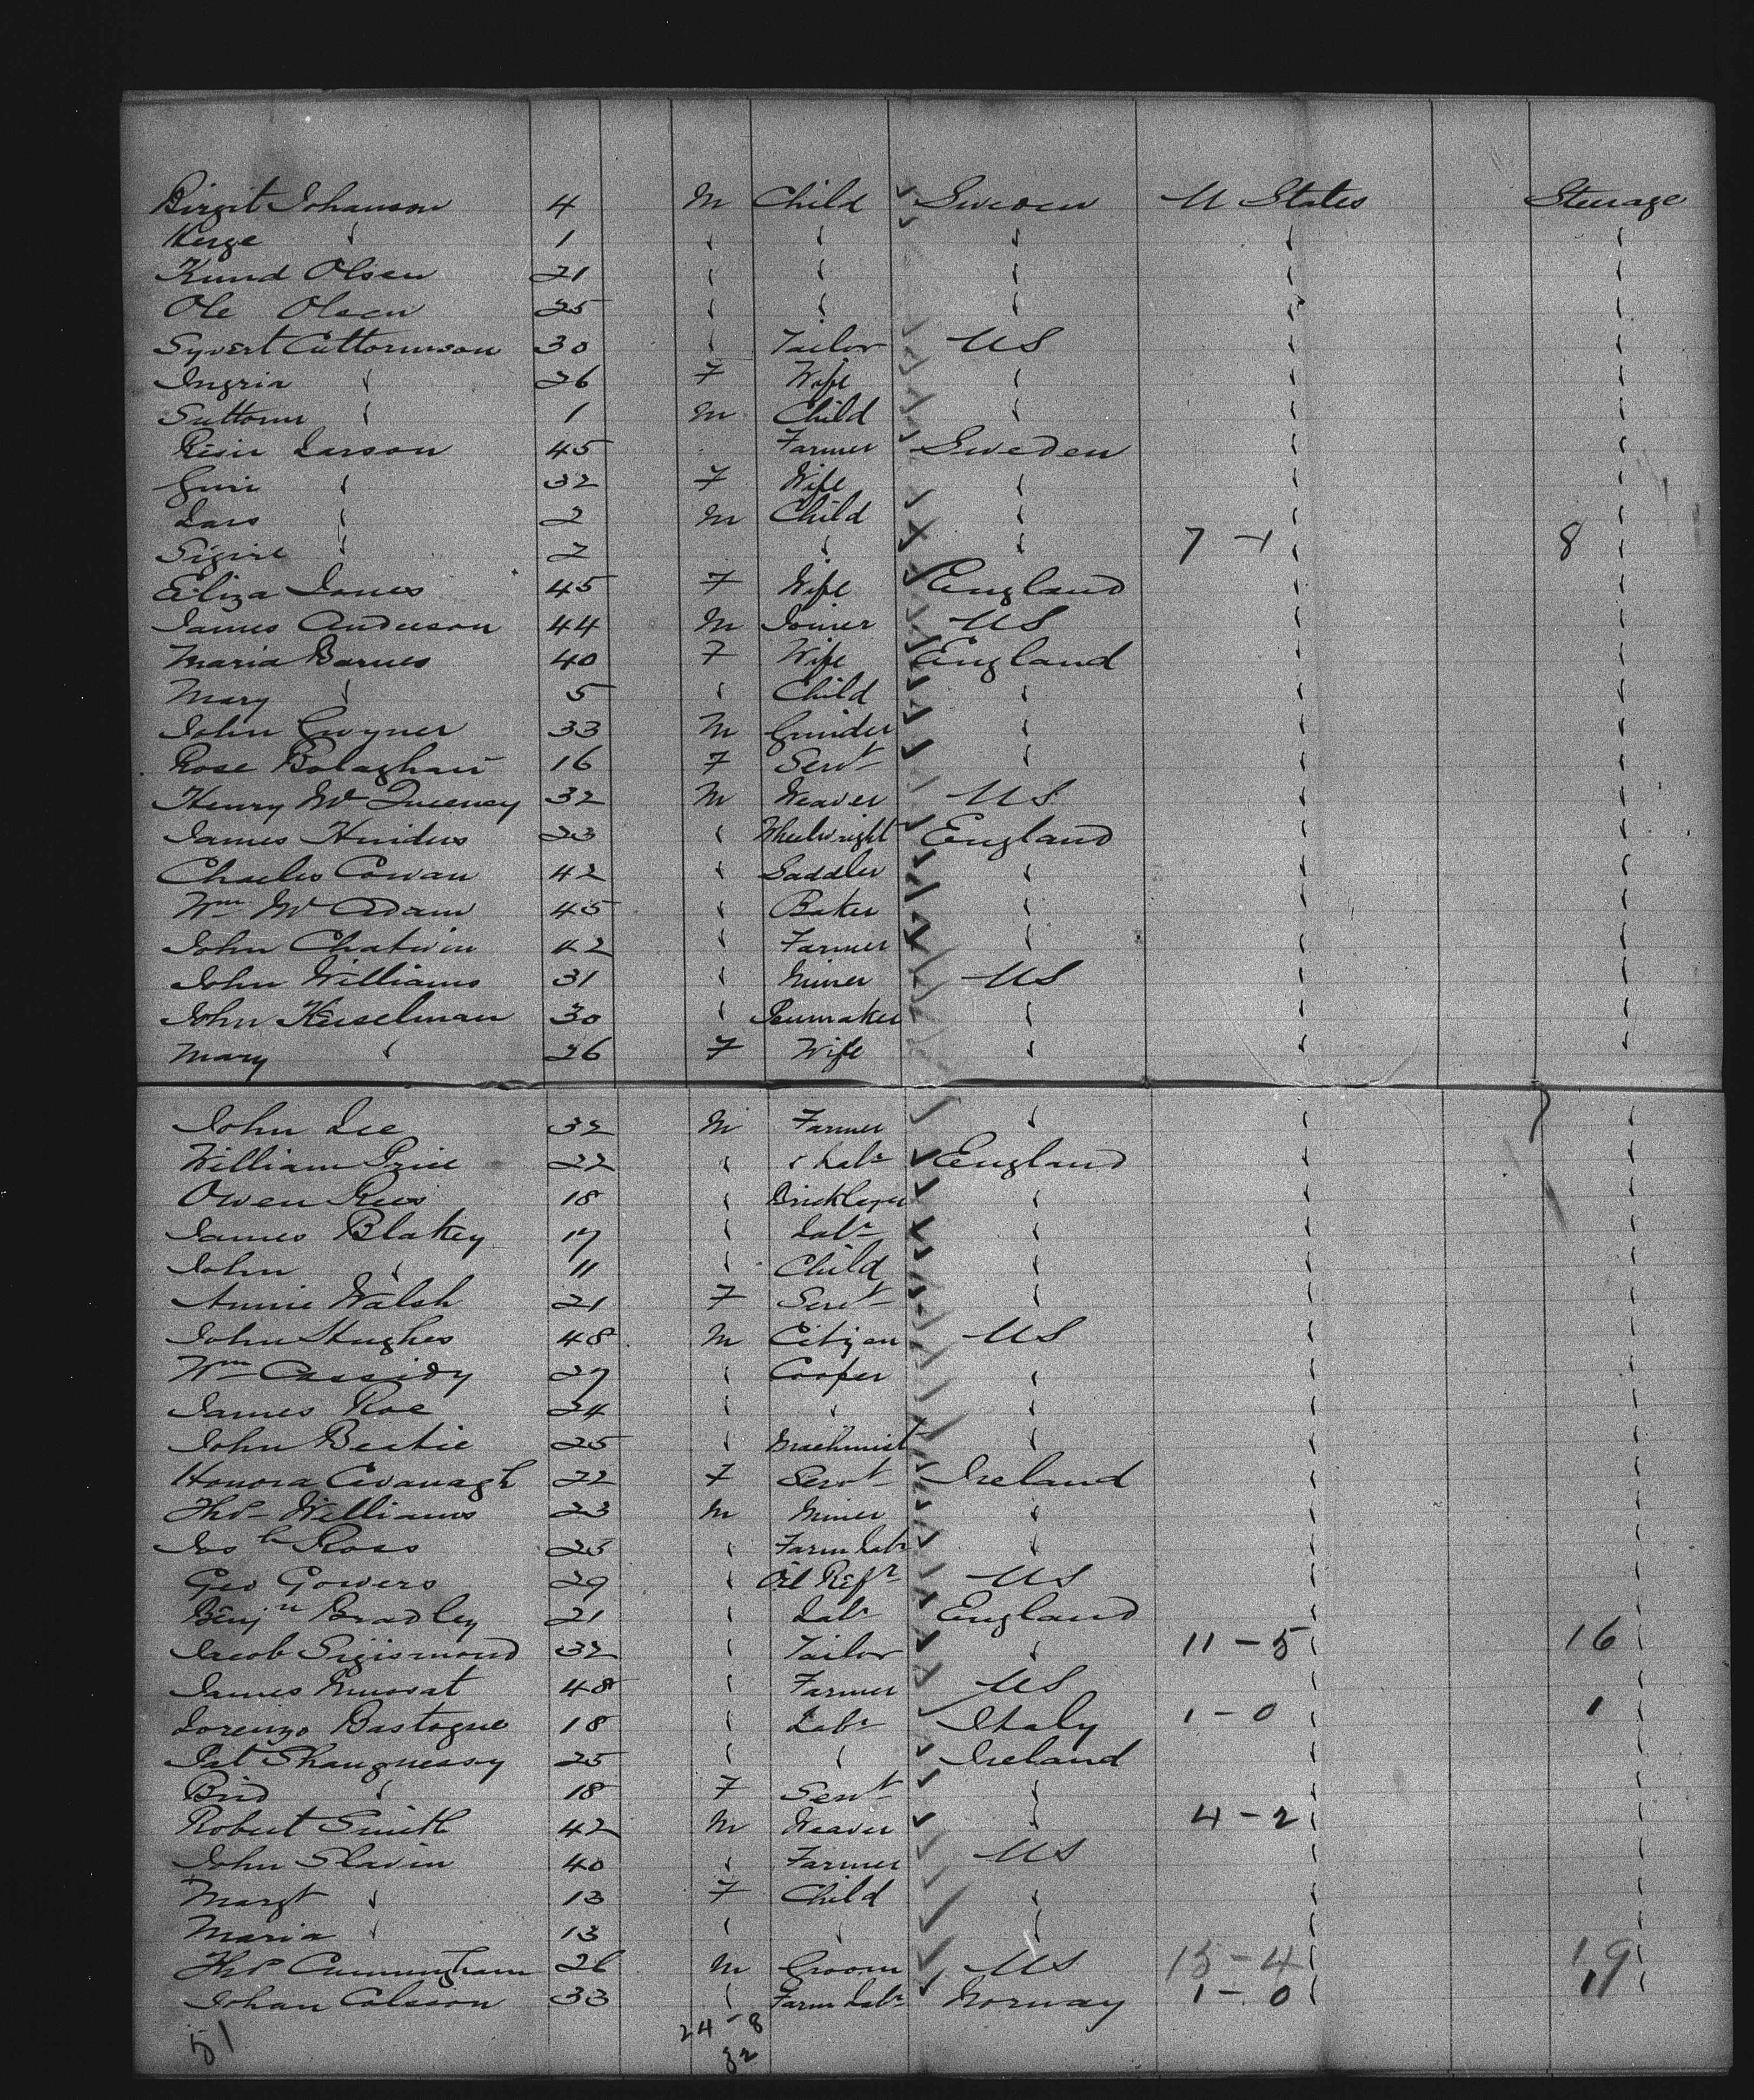 Birgit Johanson 4 M Child Sweden U States Steerage
Kerge " 1 " " " " "
Knud Olsen 21 " " " " "
Ole Olsen 25 " " " " "
Syvert Cuttormson 30 " Tailor US " "
Ingria " 26 F Wife " " "
Suttorm " 1 M Child " " "
Larson 45 Farmer Sweden " "
Guri " 32 F Wife " " "
Lars " 2 M Child " " "
" 2 " " 7 - 1 " 8 "
Eliza Jones 45 F Wife England " "
James Anderson 44 M Joiner US " "
Maria Barnes 40 F Wife England " "
Mary " 5 " Child " " "
John Gwyner 33 M Grinder " " "
Rose Bolaghan 16 F Servt " " "
Henry McQueeney 32 M Weaver US " "
James 23 " Wheelwright England " "
Charles Cowan 42 " Saddler " " "
Wm McAdam 45 " Baker " " "
John Chatwin 42 " Farmer " " "
John Williams 31 " Miner US " "
John Keiselman 30 " " " "
Mary " 26 F Wife " " "
John Lee 32 M Farmer " " "
William Price 22 " " Labr England " "
Owen Rees 18 " Bricklayer " " "
James Blakey 17 " Labr " " "
John " 11 " Child " " "
Annie Walsh 21 F Servt " " "
John Hughes 48 M Citizen US " "
Wm Cassidy 27 " Cooper " " "
James Roe 24 " " " " "
John Beatie 25 " Machinist " " "
Honora Cavanagh 22 F Servt Ireland " "
Thos Williams 23 M Miner " " "
Josh Ross 25 " Farm Labr " " "
Geo Gowers 29 " Oil Refr US " "
Benjn Bradley 21 " Labr England " "
Jacob Sigismond 32 " Tailor " 11 - 5 " 16 "
James Mussat 48 " Farmer US " "
Lorenzo Bastogne 18 " Labr Italy 1 - 0 " 1 "
Pat Shaugnessy 25 " " Ireland " "
Brid " 18 F Servt " " "
Robert Smith 42 M Weaver " 4 - 2 " "
John Slavin 40 " Farmer US " "
Margt " 13 F Child " " "
Maria " 13 " " " " "
Thos Cunningham 26 M Groom US 15 - 4 " 19 "
Johan Colsson 33 " Farm Labr Norway 1 - 0 " 1 "
51 24 - 8
32